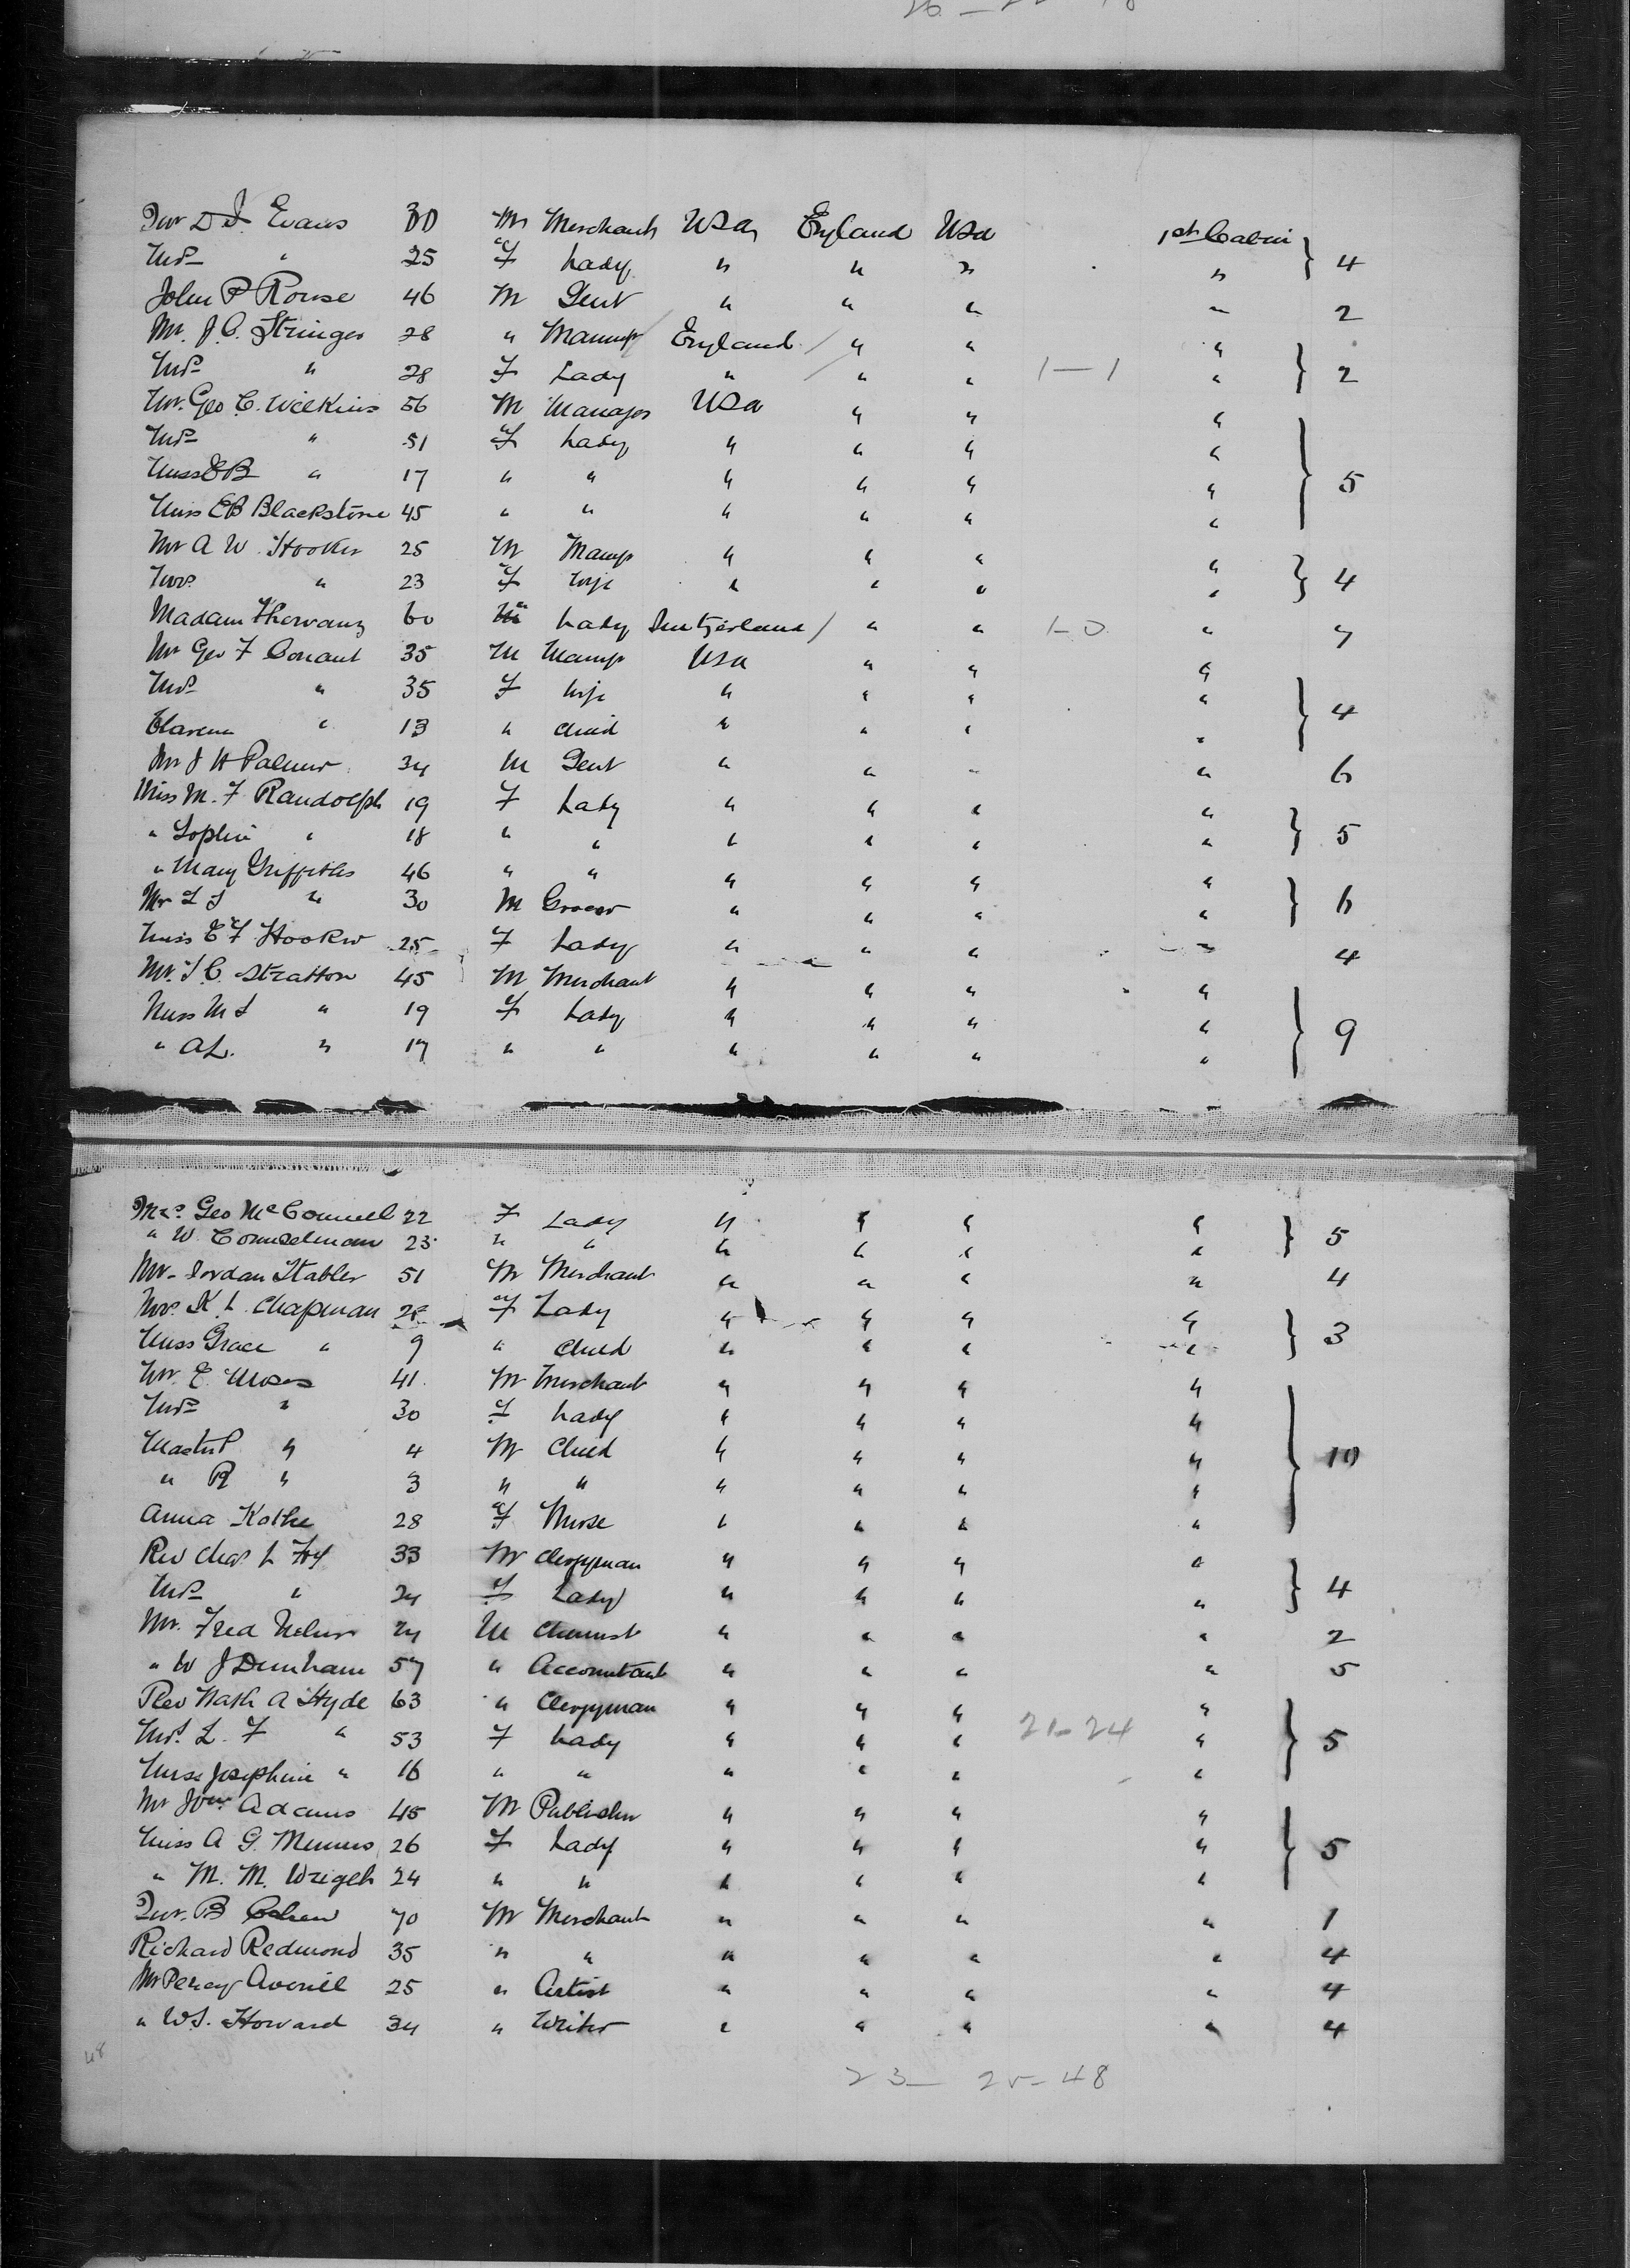 Mr D J. Evans 30 M Merchant USA England USA 1st Cabin
Mrs " 25 F Lady " " " " } 4
John P Rouse 46 M Gent " " " " 2
Mr. J. C. Stringer 28 " Manuf / England / " " "
Mrs " 28 F Lady " / " " 1-1 " } 2
Mr. Geo C. Wilkins 56 M Manager USA " " "
Mrs " 51 F Lady " " " "
Miss E B " 17 " " " " " " } 5
Miss EB Blackstone 45 " " " " " "
Mr A W. Hooker 25 M Manf " " " "
Mrs " 23 F Wife " " " " } 4
Madam Thervanz 60 Lady Switzerland / " " 1-0 "
Mr Geo F Conant 35 M Manf USA " " "
Mrs " 35 F Wife " " " " } 4
Clarence " 13 " Child " " " "
Mr J H Palmer 34 M Gent " " " " 6
Miss M. F Randolph 19 F Lady " " " "
" Sophie " 18 " " " " " " } 5
" Mary Griffiths 46 " " " " " "
Mr " 30 M Grocer " " " " } 6
Miss E F Hooker 25 F Lady " " " " 4
Mr. S. C. Stratton 45 M Merchant " " " "
Miss M S " 19 F Lady " " " " } 9
" A L. " 17 " " " " " "
Mrs. Geo McConnell 22 F Lady " " " " } 5
" W. Counselman 23 " " " " " "
Mr. Jordan Stabler 51 M Merchant " " " " 4
Mrs. K L. Chapman 28 F Lady " " " " } 3
Miss Grace " 9 " Child " " " "
Mr. E. Moses 41 M Merchant " " " "
Mrs " 30 F Lady " " " "
Master P " 4 M Child " " " " } 10
" R " 3 " " " " " "
Anna Kothe 28 F Nurse " " " "
Rev Chas L Fry 33 M Clergyman " " " "
Mrs " 24 F Lady " " " " } 4
Mr. Fred 24 M Chemist " " " " 2
" W J Dunham 57 " Accountant " " " " 5
Rev Nath A Hyde 63 " Clergyman " " " "
Mrs. L. F " 53 F Lady " " " 21-24 " } 5
Miss Josephine " 16 " " " " " "
Mr Wm Adams 45 M Publisher " " " "
Miss A G. 26 F Lady " " " " } 5
" M. M. Wright 24 " " " " " "
Mr. B Cohen 70 M Merchant " " " " 1
Richard Redmond 35 " " " " " " 4
Mr Percy Averill 25 " Artist " " " " 4
" W S. Howard 34 " Writer " " " " 4
48
23- 25-48